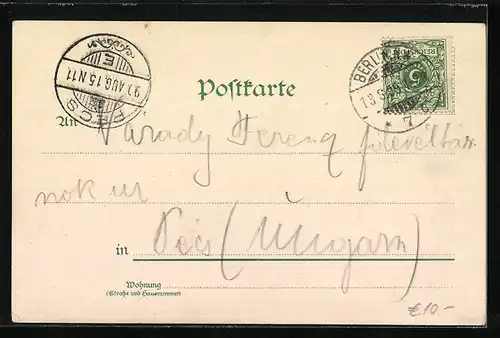 PÉCS
90 AUG. 15 N 11
BERLIN
7
Postkarte
An Várady Ferenc
nok ur
in Pécs (Ungarn)
Wohnung
(Straße und Hausnummer)
€10-